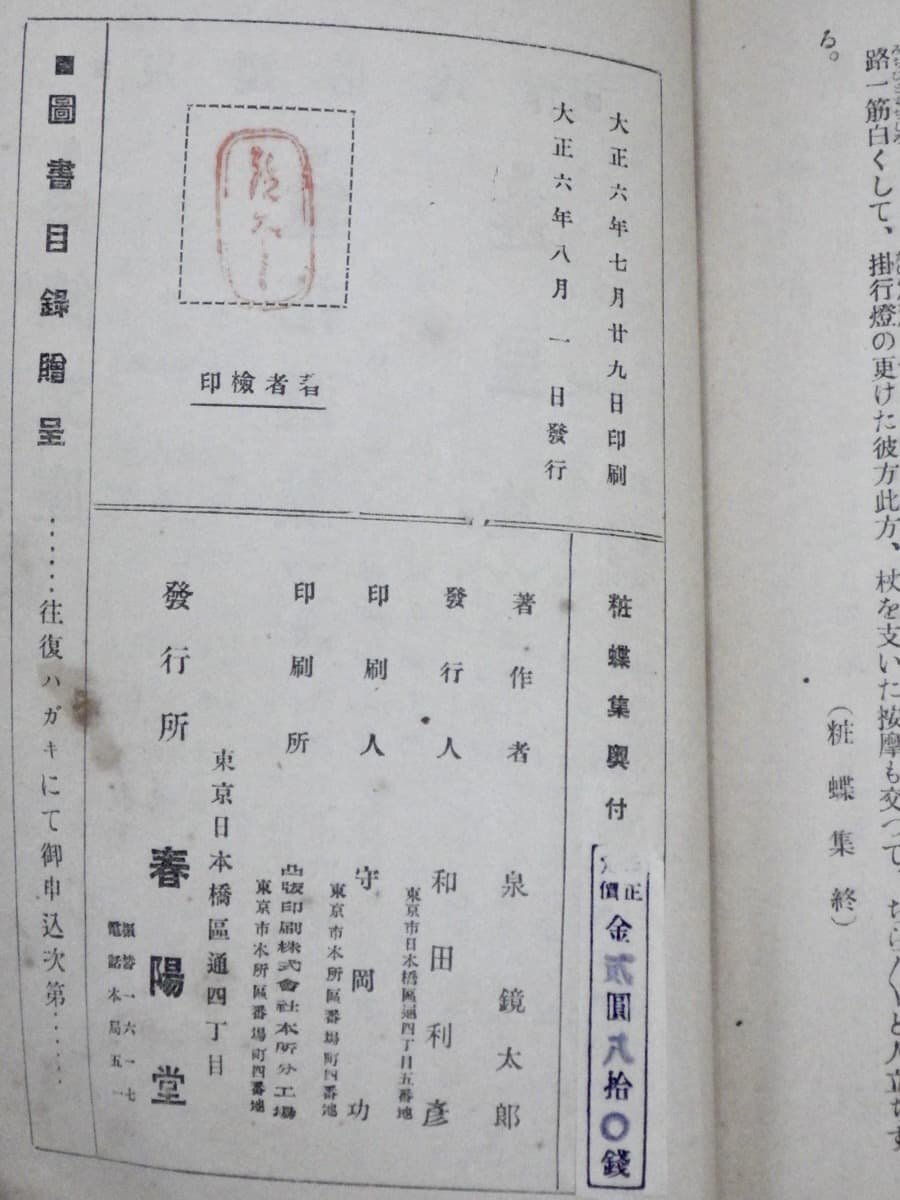 る。
路一筋白くして、掛行燈の更けた彼方此方、杖を支いた按摩も交つて、ちらほらと人立ちす
（粧蝶集終）
大正六年七月廿九日印刷
大正六年八月一日發行
著者檢印
粧蝶集奧付
正價
金貳圓八拾〇錢
著作者 泉鏡太郎
發行人 和田利彥
東京市日本橋區通四丁目五番地
印刷人 守岡功
東京市本所區番場町四番地
印刷所 凸版印刷株式會社本所分工場
東京市本所區番場町四番地
發行所
東京日本橋區通四丁目
春陽堂
振替一六一七
電話本局五一
■圖書目錄贈呈……往復ハガキにて御申込次第……